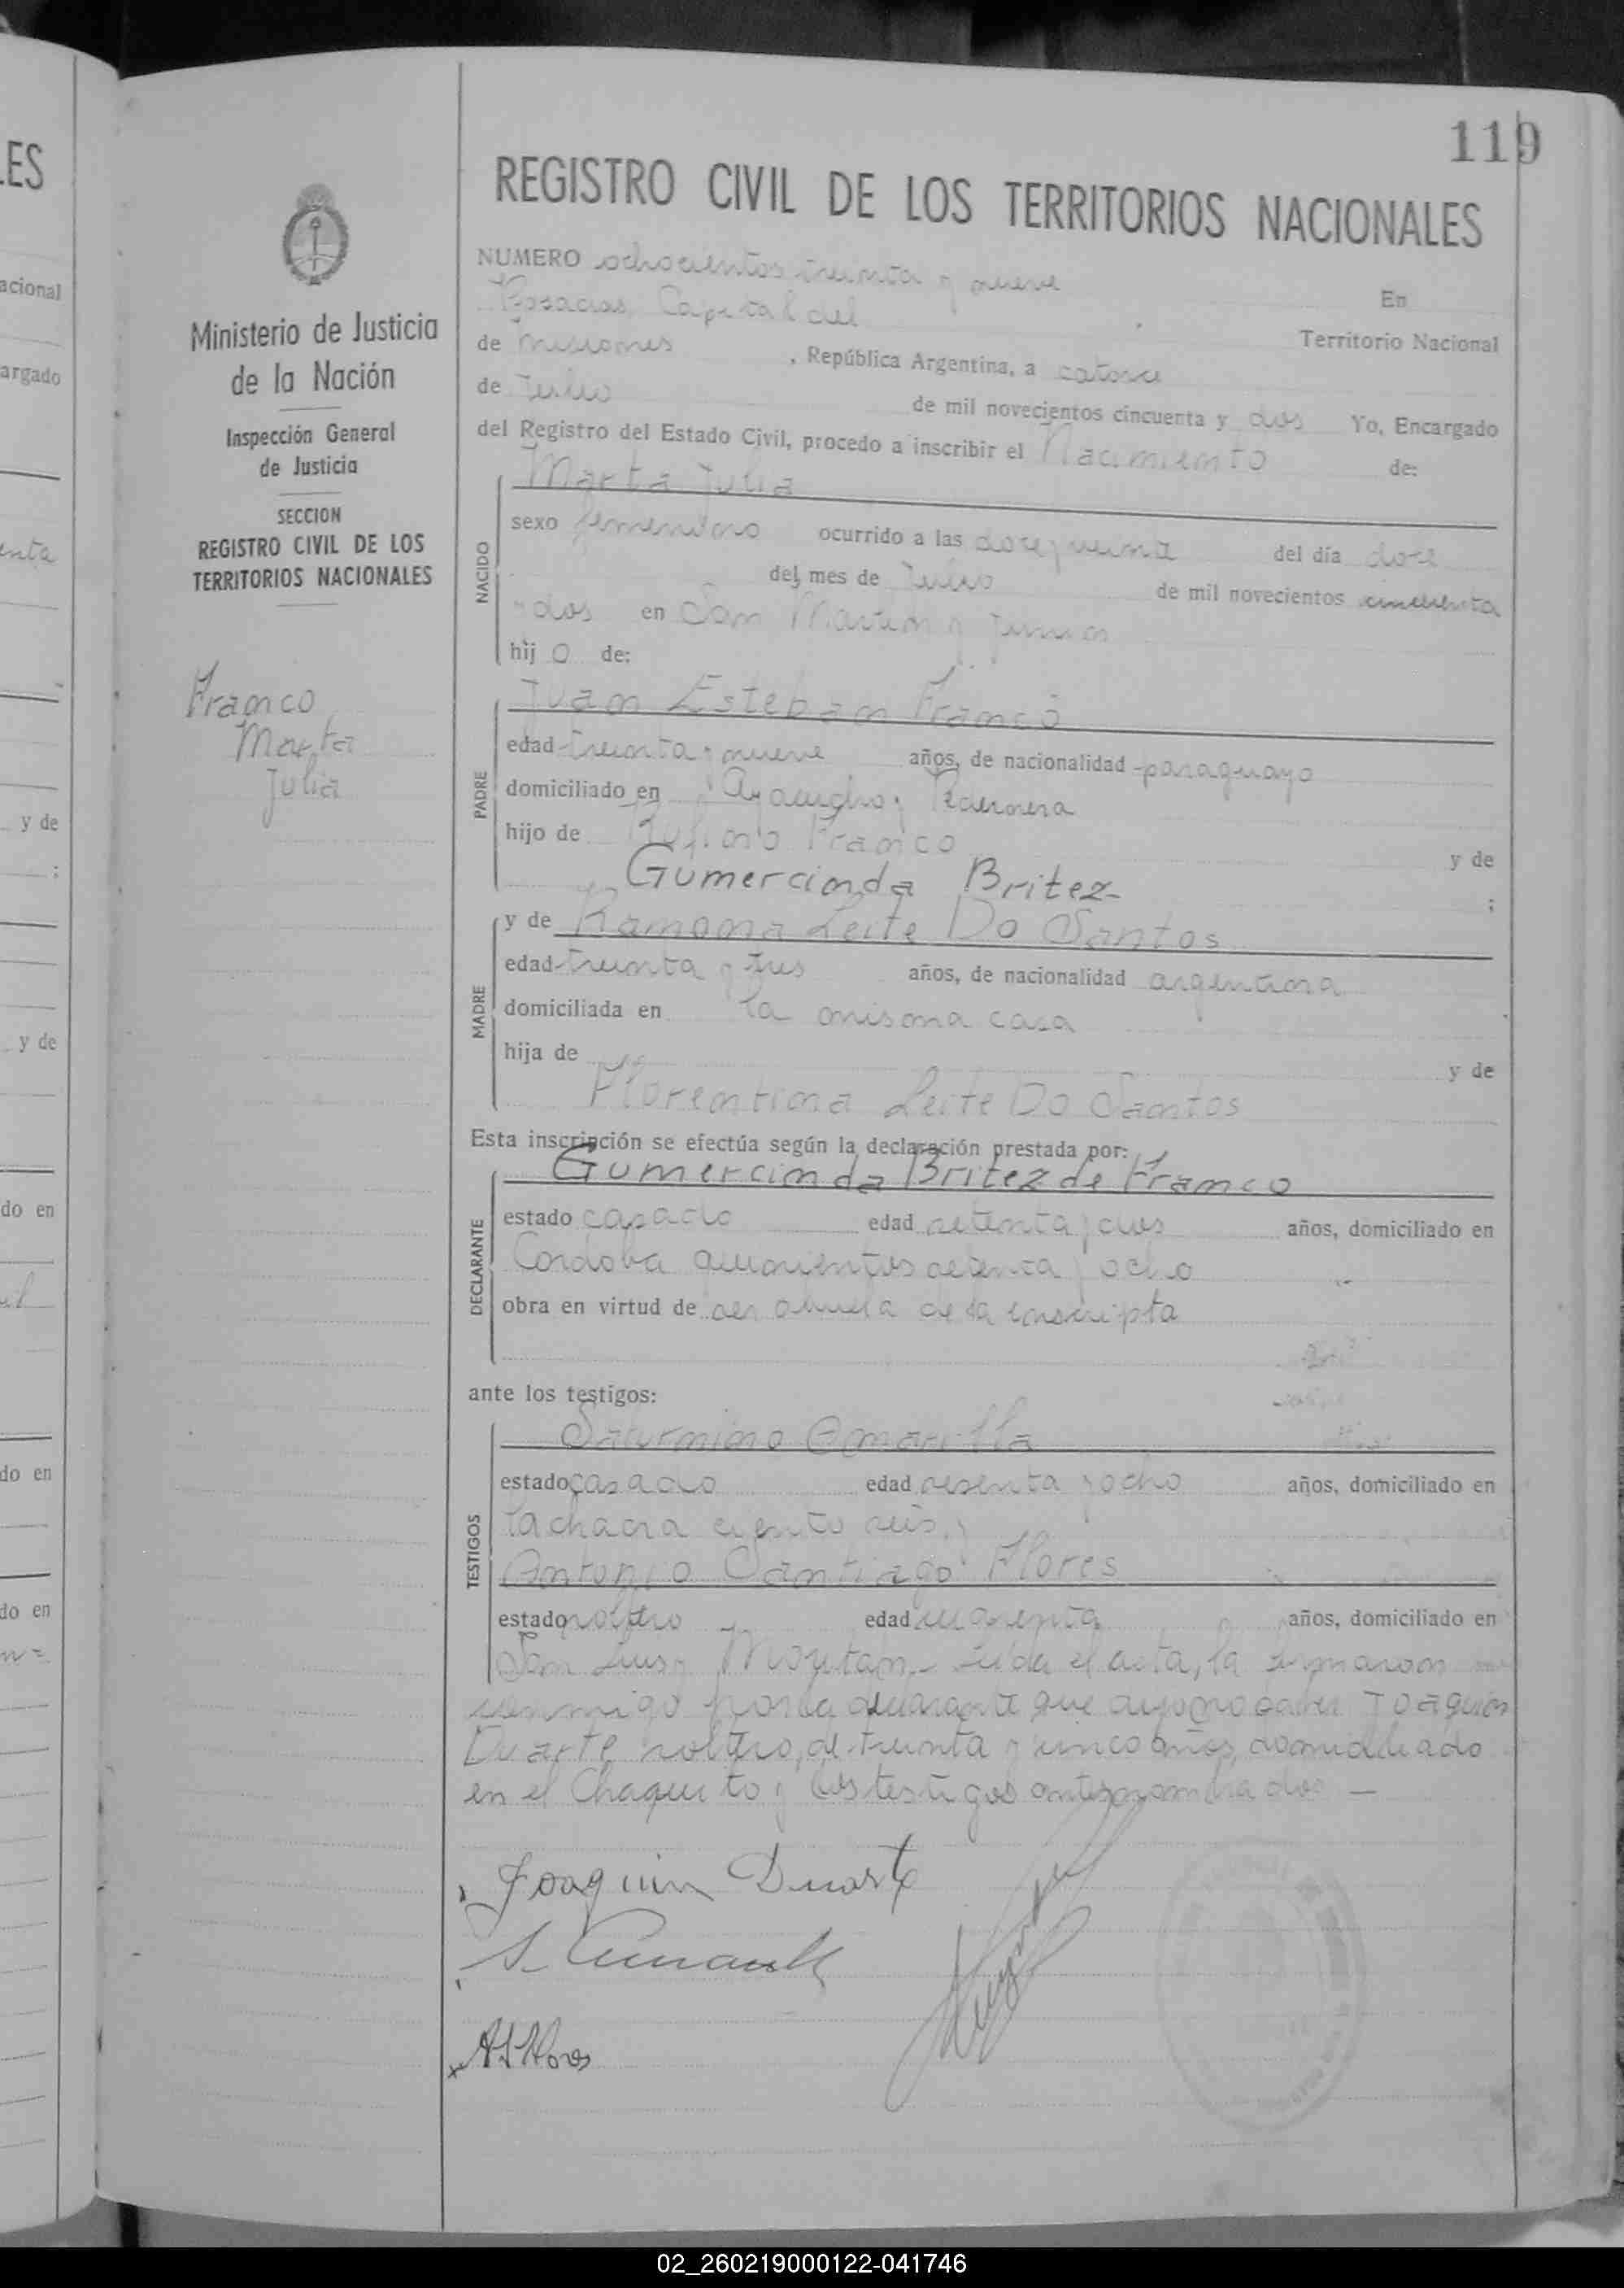 119
REGISTRO CIVIL DE LOS TERRITORIOS NACIONALES
NUMERO ochocientos treinta y nueve
En
Posadas, Capital del
Territorio Nacional
de Misiones, República Argentina, a catorce
de Julio de mil novecientos cincuenta y dos Yo, Encargado
del Registro del Estado Civil, procedo a inscribir el Nacimiento de:
NACIDO
Marta Julia
sexo femenino ocurrido a las doce y del día doce
del mes de Julio de mil novecientos cincuenta
y dos en San Martín y Junin
hij o de:
PADRE
Juan Esteban Franco
edad treinta y nueve años, de nacionalidad paraguayo
domiciliado en Ayacucho y Pedernera
hijo de Rufino Franco y de
Gumercinda Britez ;
MADRE
y de Ramona Leite Do Santos
edad treinta y tres años, de nacionalidad argentina
domiciliada en la misma casa
hija de y de
Florentina Leite Do Santos
Esta inscripción se efectúa según la declaración prestada por:
DECLARANTE
Gumercinda Britez de Franco
estado casado edad setenta y dos años, domiciliado en
Cordoba quinientos setenta y ocho
obra en virtud de ser abuela de la inscripta
ante los testigos:
TESTIGOS
Saturnino Amarilla
estado casado edad sesenta y ocho años, domiciliado en
la chacra ciento seis y
Antonio Santiago Flores
estado soltero edad cuarenta años, domiciliado en
San Luis y Leida el acta, la firmaron
conmigo por la declarante que dijo no saber Joaquin
Duarte soltero, de treinta y cinco años, domiciliado
en el Chaquito y los testigos antes nombrados —
Joaquin Duarte
S. Amarilla
A S Flores
Ministerio de Justicia
de la Nación
Inspección General
de Justicia
SECCION
REGISTRO CIVIL DE LOS
TERRITORIOS NACIONALES
Franco
Marta
Julia
LES
acional
argado
enta
y de
;
y de
do en
do en
do en
02_260219000122-041746